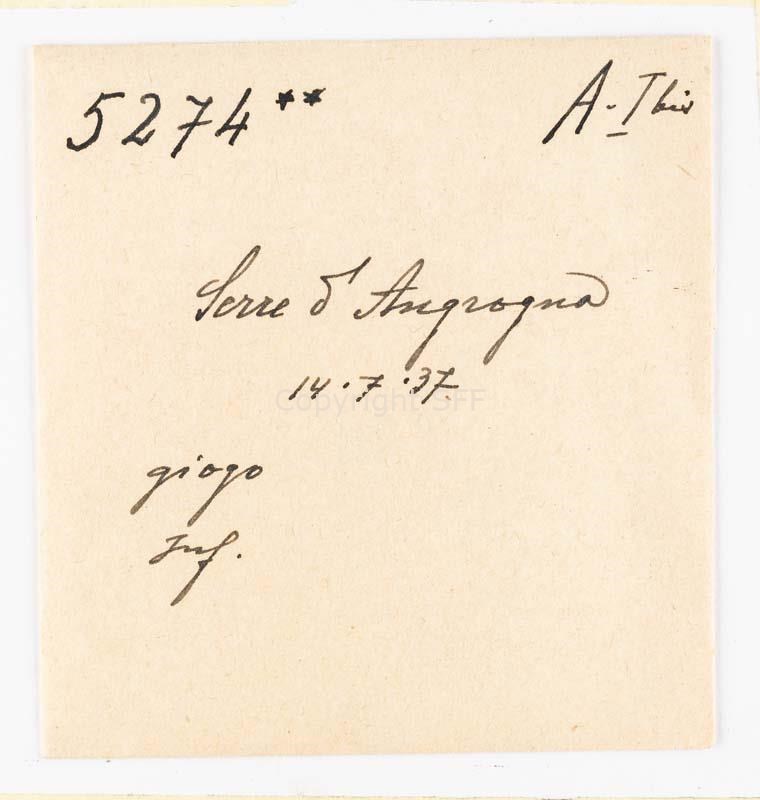 5274** A-I bis
Serre d'Angrogna
14.7.37
Copyright SFF
giogo
Inf.